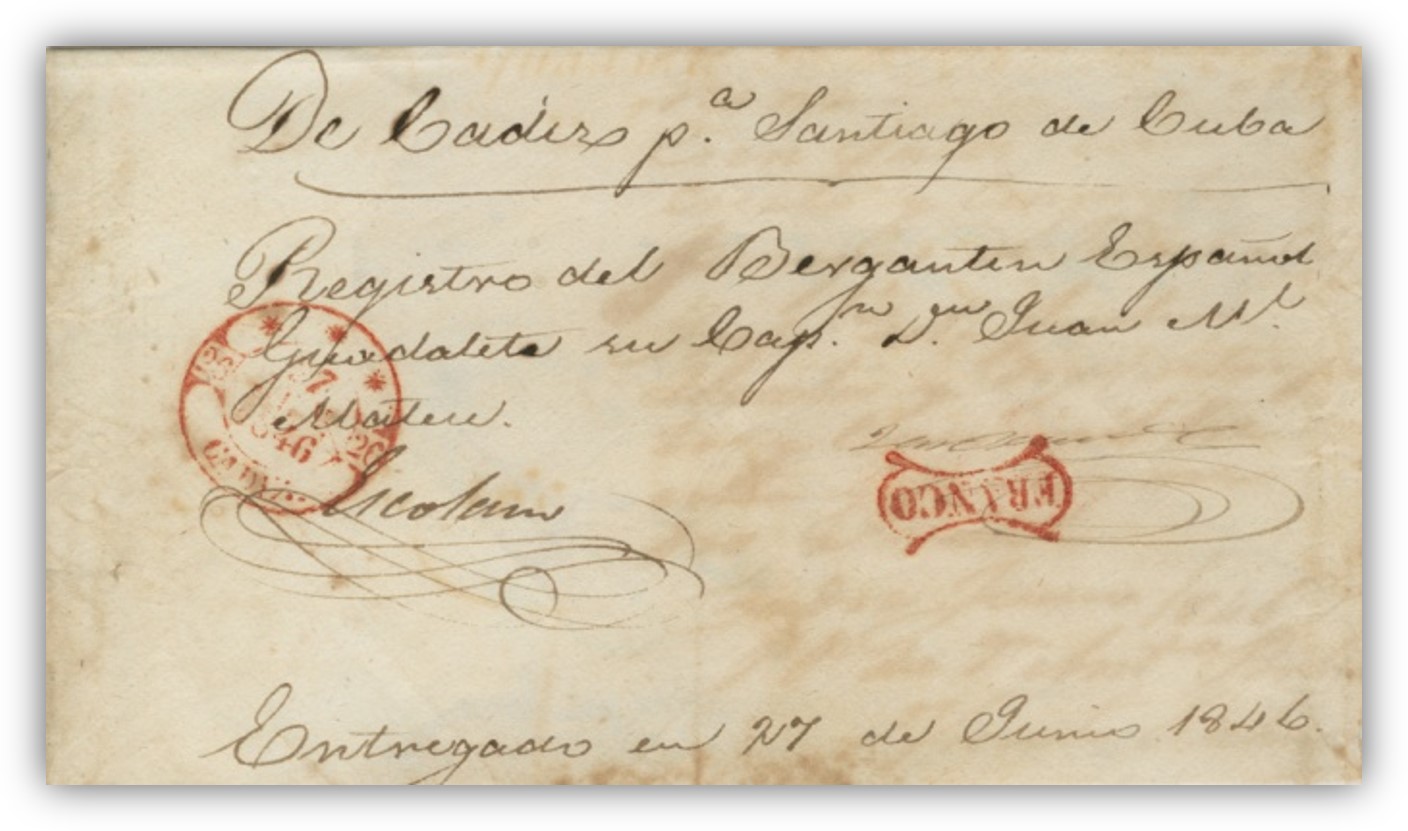 De Cadiz p.ª Santiago de Cuba
Registro del Bergantin Español
Guadalete su Cap.ⁿ D.ⁿ Juan M.ˡ
Mateu.
FRANCO
27
1846
CADIZ
Entregado en 27 de Junio 1846.